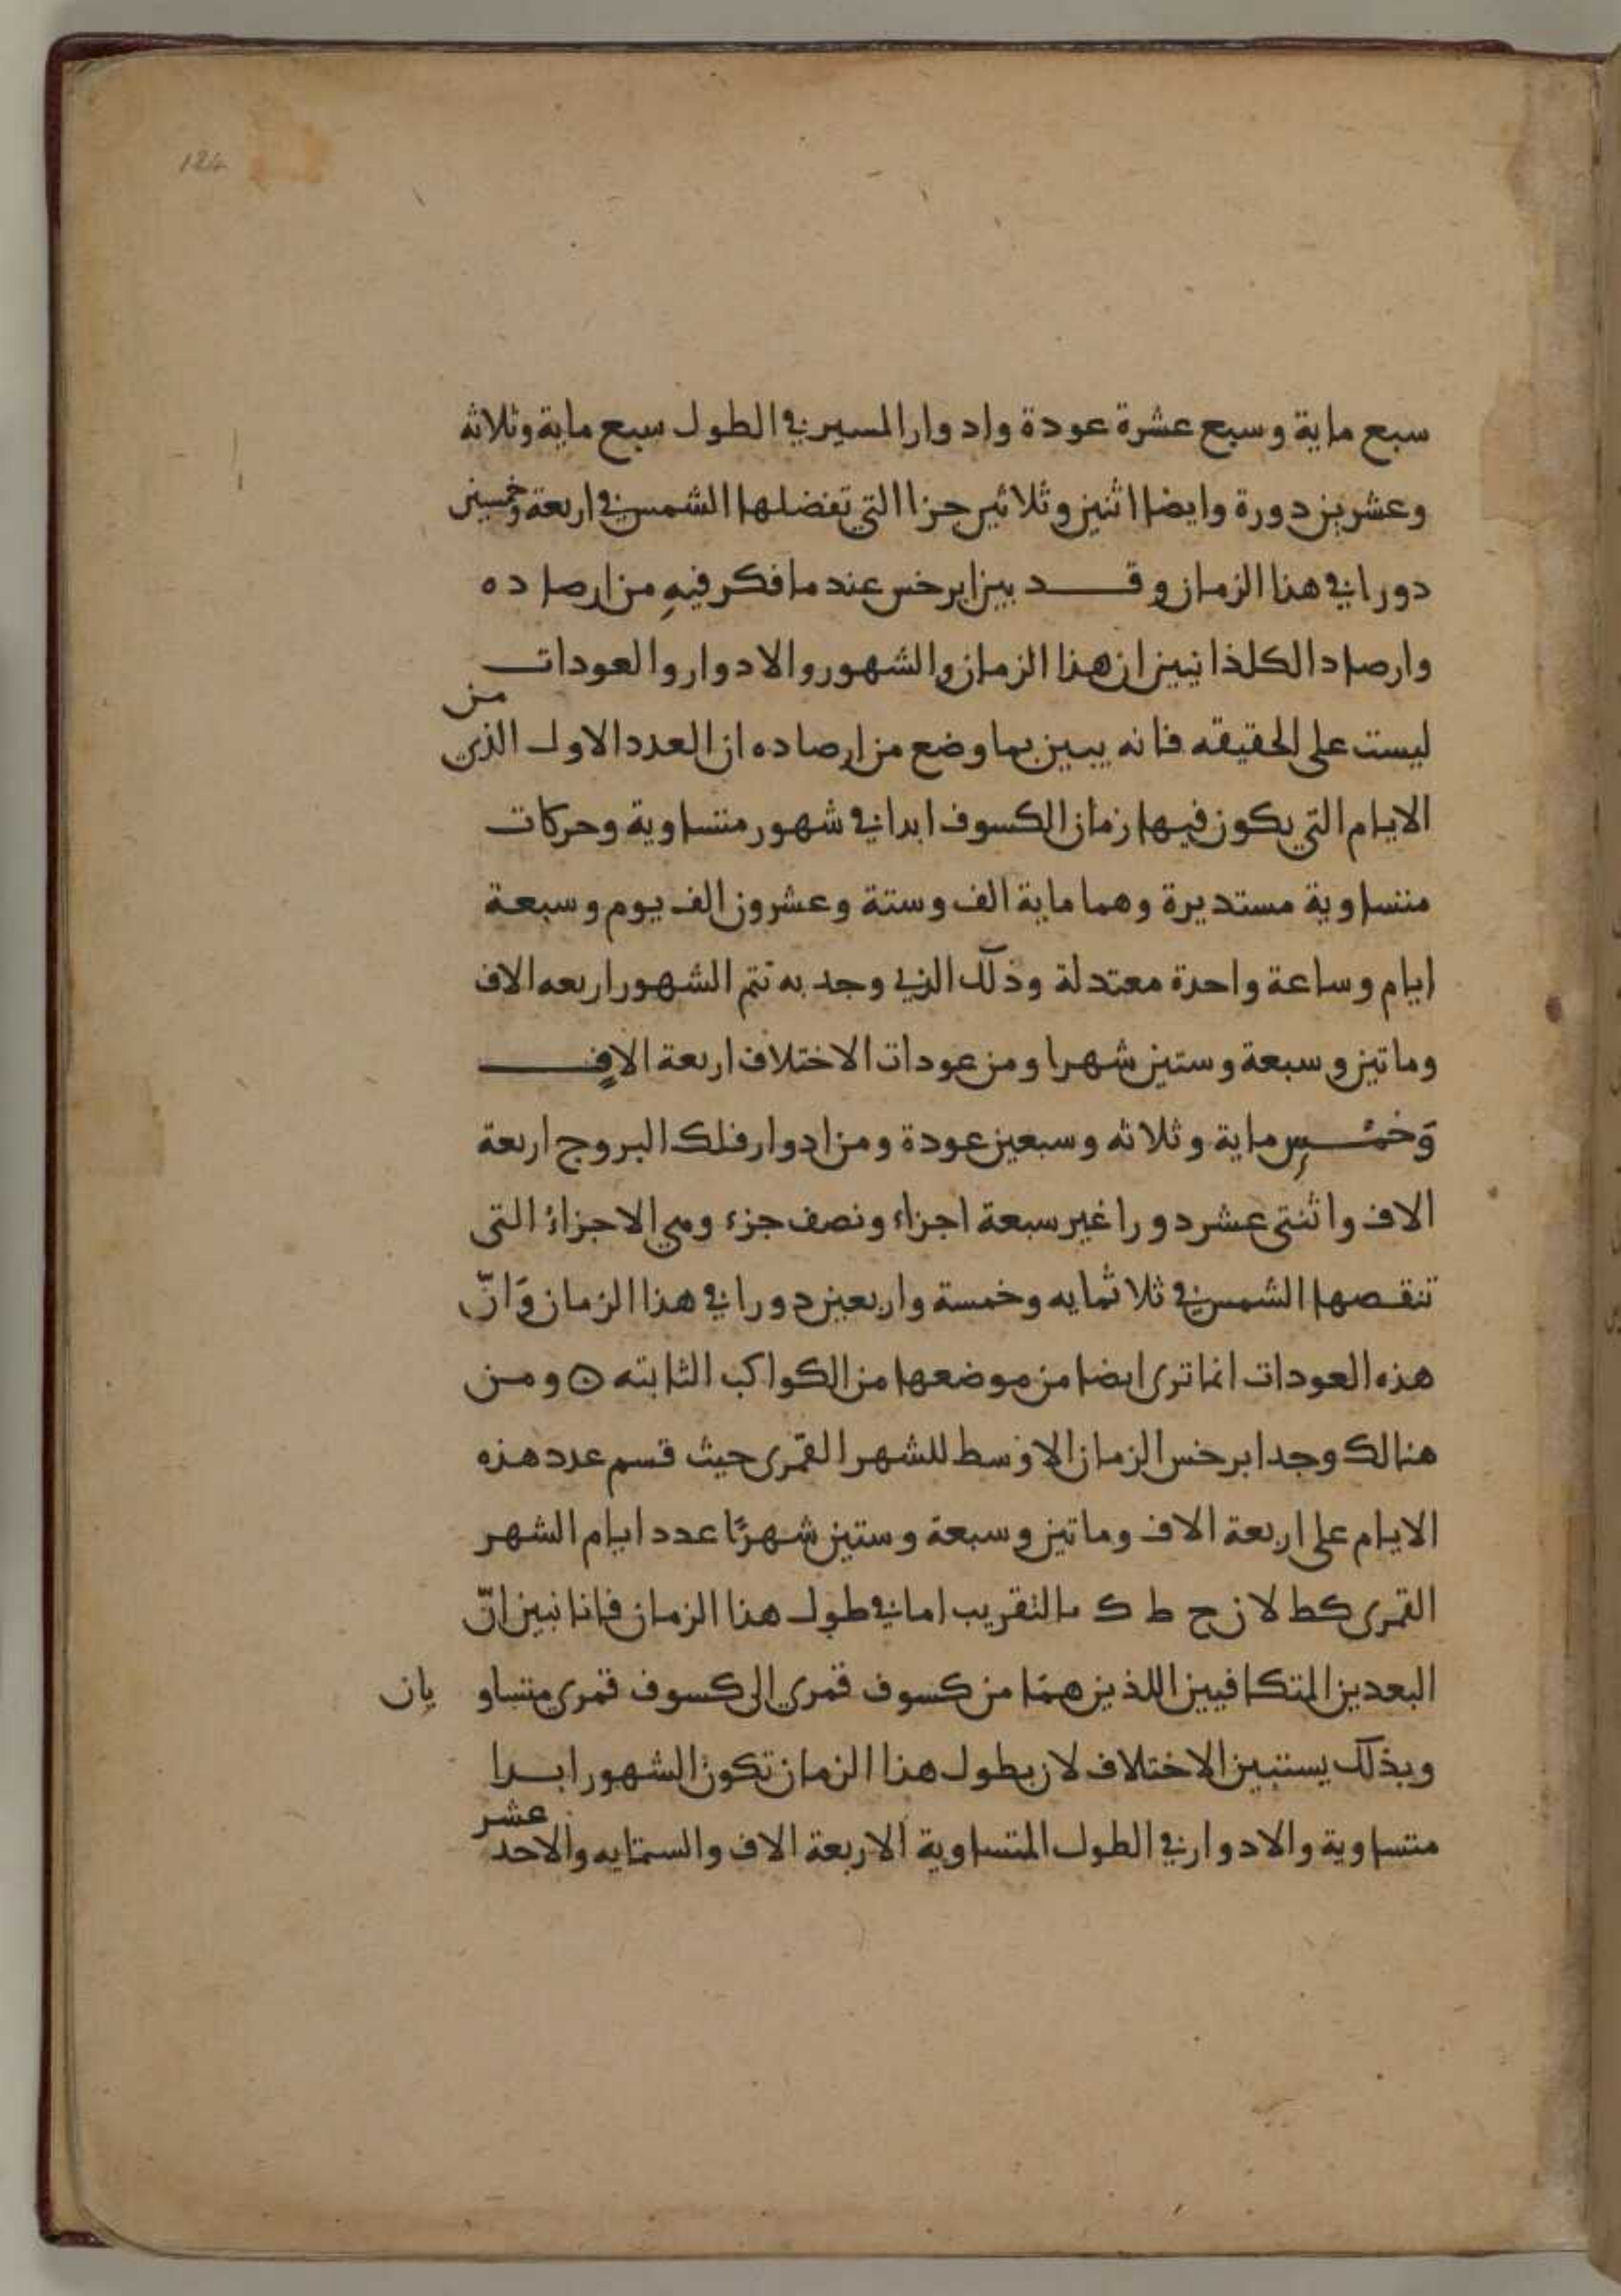 124
سبع ماية وسبع عشرة عودة وادوار المسير في الطول سبع ماية وثلاثه
وعشرين دورة وايضا اثنين وثلاثين جزا التي تفضلها الشمس في اربعة وخمسين
دورا في هذا الزمان وقد بين ابرخس عند ما فكر فيهِ من ارصاده
وارصاد الكلذانيين ان هذا الزمان والشهور والادوار والعودات
ليست على الحقيقه فانه يبين بما وضع من ارصاده ان العدد الاول الذي من
الايام التي يكون فيها زمان الكسوف ابدا في شهور متساوية وحركات
متساوية مستديرة وهما ماية الف وستة وعشرون الف يوم وسبعة
ايام وساعة واحدة معتدلة وذلك الذي وجد به تتم الشهور اربعه الاف
وماتين وسبعة وستين شهرا ومن عودات الاختلاف اربعة الافٍ
وَخمْسِ ماية وثلاثه وسبعين عودة ومن ادوار فلك البروج اربعة
الاف واثنتى عشر دورا غير سبعة اجزاء ونصف جزء وهي الاجزاءُ التى
تنقصها الشمس في ثلاثمايه وخمسة واربعين دورا في هذا الزمان وَانّ
هذه العودات انما ترى ايضا من موضعها من الكواكب الثابته ۞ ومن
هنالك وجد ابرخس الزمان الاوْسط للشهر القمرى حيث قسم عدد هذه
الايام على اربعة الاف وماتين وسبعة وستين شهرًا عدد ايام الشهر
القمرى كط لا ن ح ط ك بالتقريب اما في طول هذا الزمان فانا نبين انّ
البعدين المتكافيين اللذين همَا من كسوف قمري الى كسوف قمري متساويان
وبذلك يستبين الاختلاف لان بطول هذا الزمان تكون الشهور ابدا
متساوية والادوار في الطول المتساوية الاربعة الاف والستمايه والاحد عشر